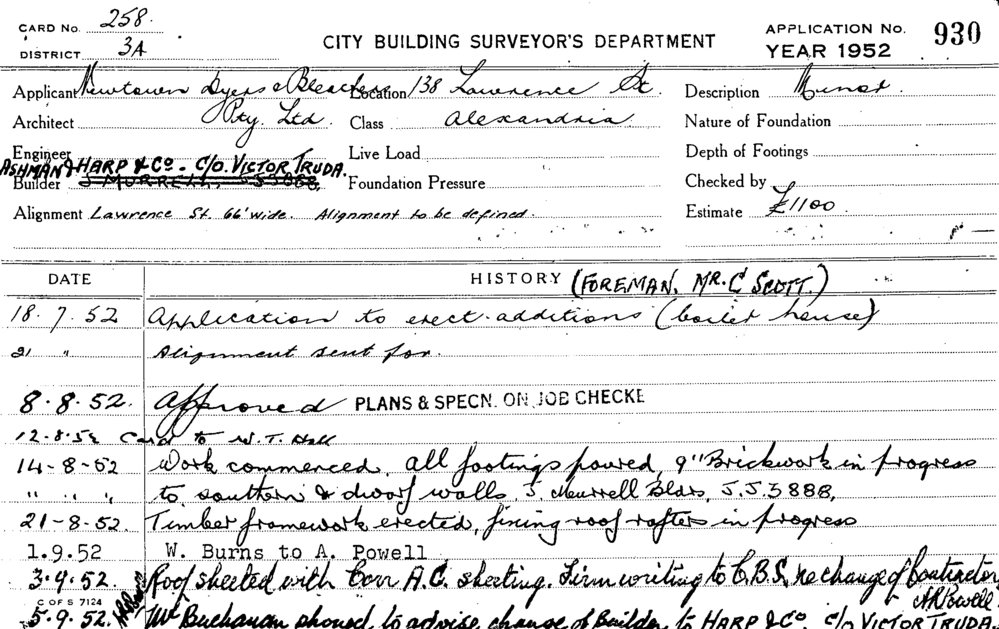 CARD No. 258.
DISTRICT 3A
CITY BUILDING SURVEYOR'S DEPARTMENT
APPLICATION No. 930
YEAR 1952
Applicant Newtown Dyers & Bleachers Pty. Ltd
Location 138 Lawrence St.
Description Minor.
Architect
Class Alexandria.
Nature of Foundation
Engineer
Live Load
Depth of Footings
ASHMAN & HARP & Co. C/O. VICTOR TRUDA.
Builder J MURRELL, JJ3888
Foundation Pressure
Checked by
Alignment Lawrence St. 66' wide. Alignment to be defined.
Estimate £1100
DATE HISTORY (FOREMAN. MR. C SCOTT.)
18.7.52 Application to erect additions (boiler house)
21 " Alignment sent for.
8.8.52. Approved PLANS & SPECN. ON JOB CHECKE
12-8-52 Card to W.T. Hall
14-8-52 Work commenced, all footings poured, 9" Brickwork in progress
" " " to southern & dwarf walls, J. Murrell Bldr, J.J.3888,
21-8-52. Timber framework erected, fixing roof rafters in progress
1.9.52 W. Burns to A. Powell
3.9.52. Roof sheeted with Corr A.C. sheeting. Firm writing to C.B.S. re change of Contractor
C OF S 7124 A R Powell.
5.9.52. Mr Buchanan phoned to advise change of Builder to HARP & Co. C/O VICTOR TRUDA.